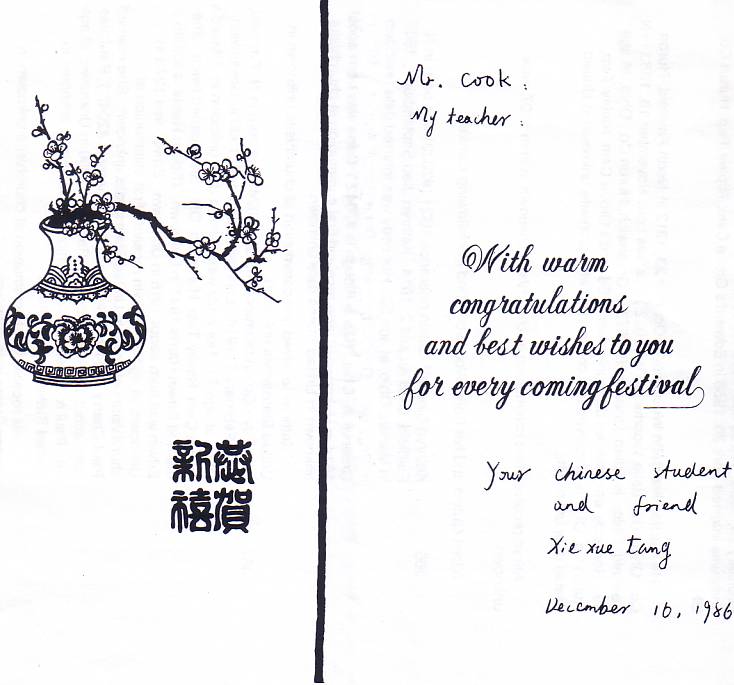 恭賀
新禧
Mr. Cook :
My teacher :
With warm
congratulations
and best wishes to you
for every coming festival
Your chinese student
and friend
Xie xue tang
December 16, 1986